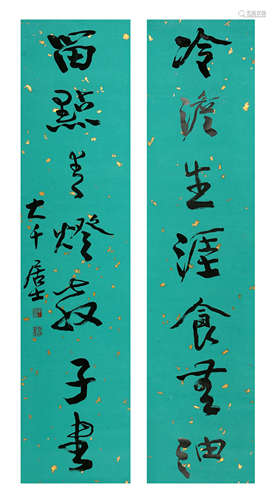 冷澹生涯食無油
留點青燈教子書
大千居士